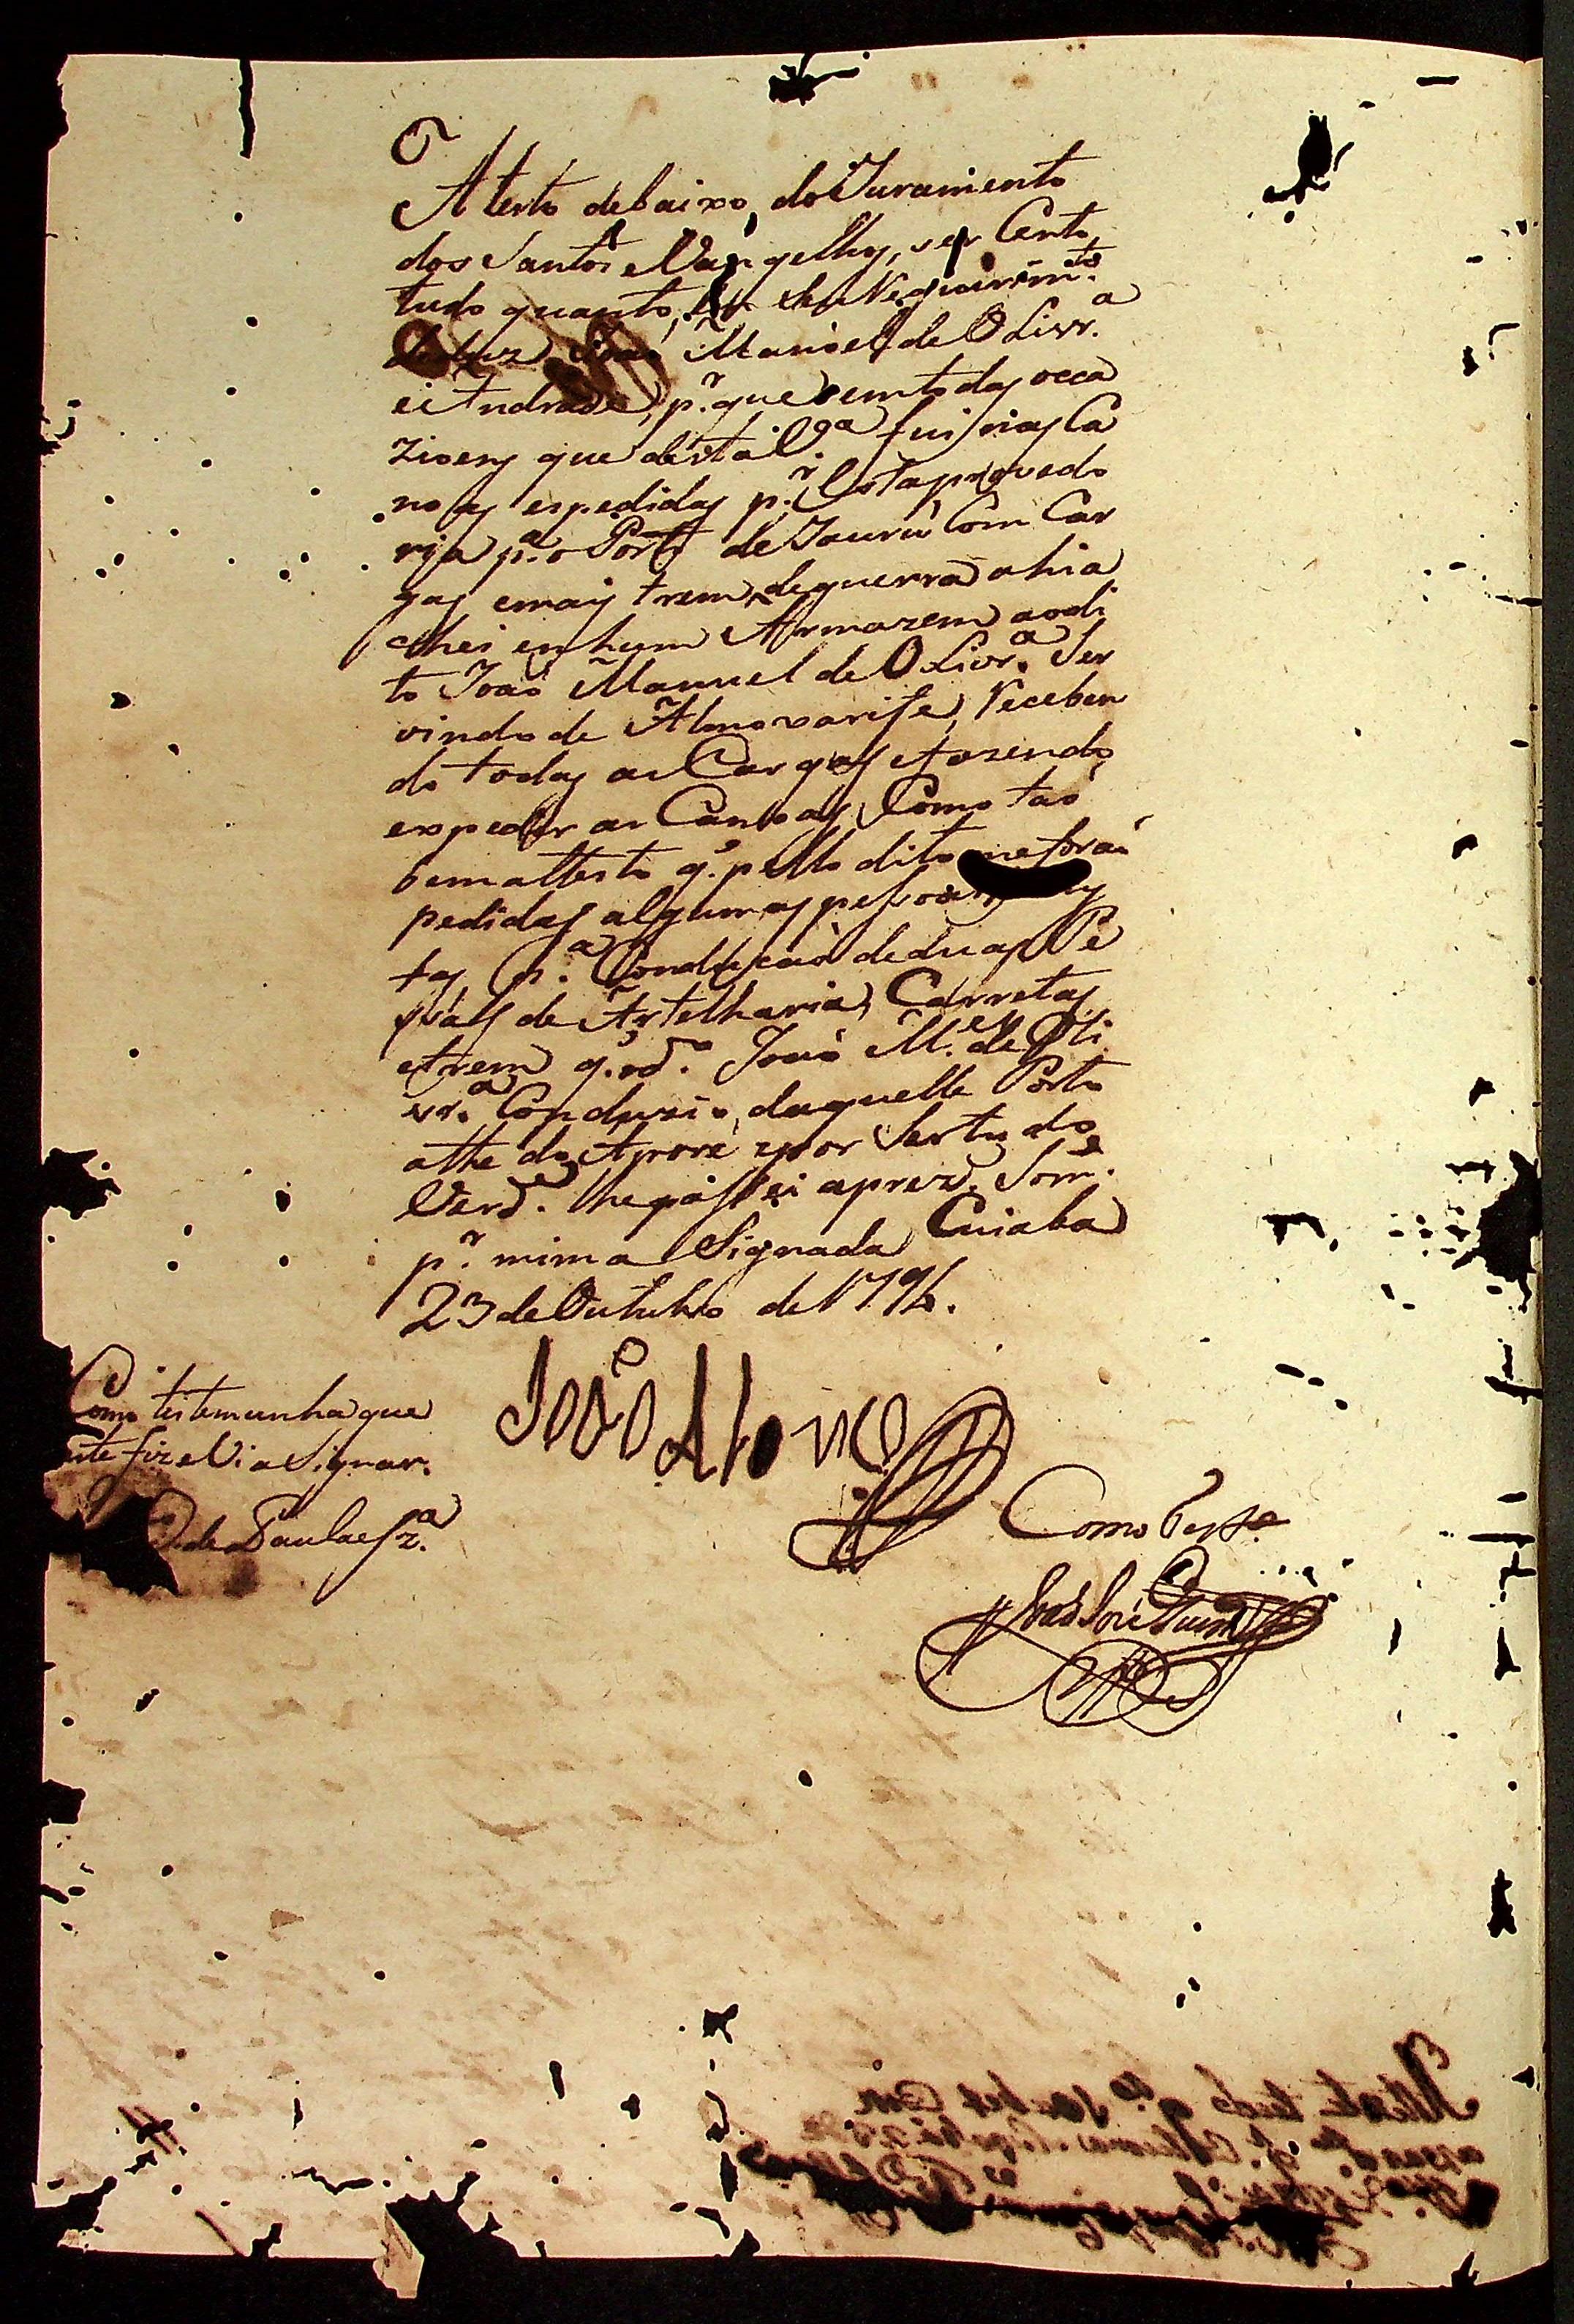 Atesto debaixo, do Juramento
dos Santos eVangelhos, ser Certo
tudo quanto, em seu Requirimto.
João Manoel de OLivr.a
e Andrade, p.r que em todas occa
zioens que desta V.a fui nas Ca
noas espedidas p.r Esta provedo
ria p.a o Porto de Jaurú Com Car
gas emais trem deguerra ahia
chei en hum Armazem aodi
to João Manuel de OLivr.a Ser
vindo de Almoxarife, Receben
do todas as Cargas efazendo
expedir as Canoas, Como tão
bem attesto q. pello dito me forão
pedidas algumas pessoas
tas p.a Condução deduas Pe
ssas de Artelharia, Carretas
etrem q. od.o João M.el de Oli
vr.a Conduzio, daquelle Porto
athe do epor Ser tudo
Verd.e lhe passei aprez.e Som.e
p.r mim aSignada Cuiaba
23 de Outubro de 179
João A
Como testemunha que
este fiz eVi aSignar.
de Paula
Como Test.a
João José